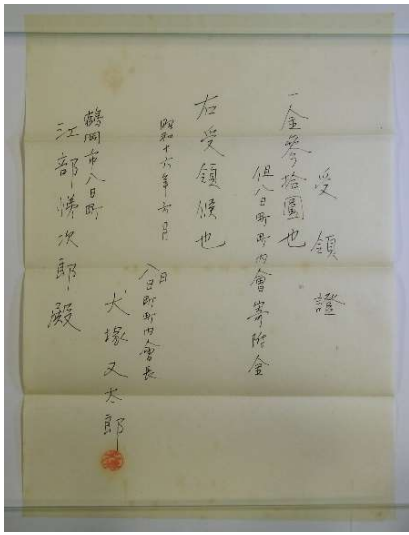 受領證
一金參拾圓也
但八日町町内會寄附金
右受領候也
昭和十六年六月 日
八日町町内會長
犬塚又太郎
鶴岡市八日町
江部悌次郎殿